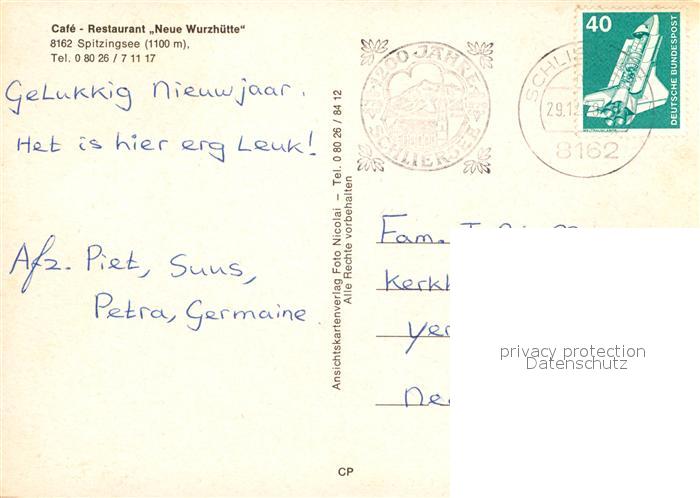 Café - Restaurant „Neue Wurzhütte"
8162 Spitzingsee (1100 m),
Tel. 0 80 26 / 7 11 17
Gelukkig Nieuwjaar.
Het is hier erg Leuk!
Afz. Piet, Suus,
Petra, Germaine
Ansichtskartenverlag Foto Nicolai — Tel. 0 80 26 / 84 12
Alle Rechte vorbehalten
CP
1200 JAHRE
SCHLIERSEE
8162
40
DEUTSCHE BUNDESPOST
Fam.
privacy protection
Datenschutz